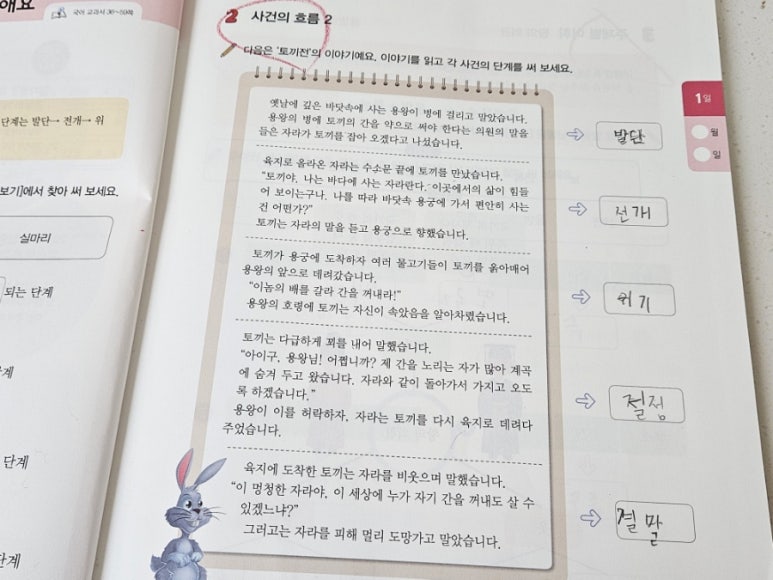 해요
국어 교과서 36~59쪽
단계는 발단→ 전개→ 위
보기]에서 찾아 써 보세요.
실마리
되는 단계
단계
2 사건의 흐름 2
다음은 '토끼전'의 이야기예요. 이야기를 읽고 각 사건의 단계를 써 보세요.
옛날에 깊은 바닷속에 사는 용왕이 병에 걸리고 말았습니다.
용왕의 병에 토끼의 간을 약으로 써야 한다는 의원의 말을
들은 자라가 토끼를 잡아 오겠다고 나섰습니다.
발단
육지로 올라온 자라는 수소문 끝에 토끼를 만났습니다.
"토끼야, 나는 바다에 사는 자라란다. 이곳에서의 삶이 힘들
어 보이는구나. 나를 따라 바닷속 용궁에 가서 편안히 사는
건 어떤가?"
토끼는 자라의 말을 듣고 용궁으로 향했습니다.
전개
토끼가 용궁에 도착하자 여러 물고기들이 토끼를 옭아매어
용왕의 앞으로 데려갔습니다.
"이놈의 배를 갈라 간을 꺼내라!"
용왕의 호령에 토끼는 자신이 속았음을 알아차렸습니다.
위기
토끼는 다급하게 꾀를 내어 말했습니다.
"아이구, 용왕님! 어쩝니까? 제 간을 노리는 자가 많아 계곡
에 숨겨 두고 왔습니다. 자라와 같이 돌아가서 가지고 오도
록 하겠습니다."
용왕이 이를 허락하자, 자라는 토끼를 다시 육지로 데려다
주었습니다.
절정
육지에 도착한 토끼는 자라를 비웃으며 말했습니다.
"이 멍청한 자라야, 이 세상에 누가 자기 간을 꺼내도 살 수
있겠느냐?"
그러고는 자라를 피해 멀리 도망가고 말았습니다.
결말
1일
월
일